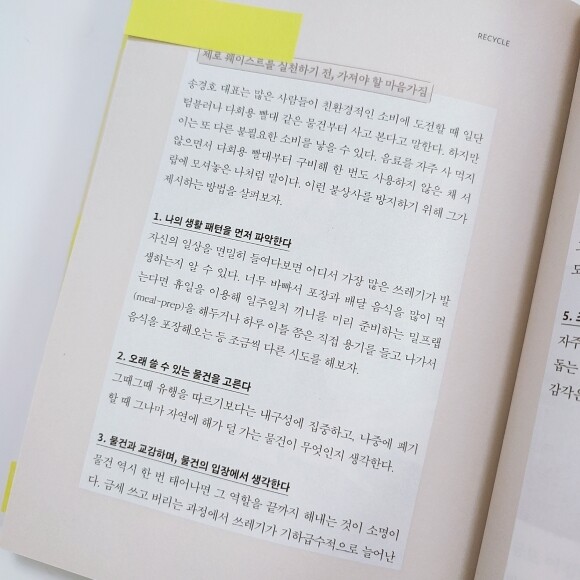 RECYCLE
제로 웨이스트를 실천하기 전, 가져야 할 마음가짐
송경호 대표는 많은 사람들이 친환경적인 소비에 도전할 때 일단
텀블러나 다회용 빨대 같은 물건부터 사고 본다고 말한다. 하지만
이는 또 다른 불필요한 소비를 낳을 수 있다. 음료를 자주 사 먹지
않으면서 다회용 빨대부터 구비해 한 번도 사용하지 않은 채 서
랍에 모셔놓은 나처럼 말이다. 이런 불상사를 방지하기 위해 그가
제시하는 방법을 살펴보자.
1. 나의 생활 패턴을 먼저 파악한다
자신의 일상을 면밀히 들여다보면 어디서 가장 많은 쓰레기가 발
생하는지 알 수 있다. 너무 바빠서 포장과 배달 음식을 많이 먹
는다면 휴일을 이용해 일주일치 끼니를 미리 준비하는 밀프렙
(meal-prep)을 해두거나 하루 이틀 쯤은 직접 용기를 들고 나가서
음식을 포장해오는 등 조금씩 다른 시도를 해보자.
2. 오래 쓸 수 있는 물건을 고른다
그때그때 유행을 따르기보다는 내구성에 집중하고, 나중에 폐기
할 때 그나마 자연에 해가 덜 가는 물건이 무엇인지 생각한다.
3. 물건과 교감하며, 물건의 입장에서 생각한다
물건 역시 한 번 태어나면 그 역할을 끝까지 해내는 것이 소명이
다. 금세 쓰고 버리는 과정에서 쓰레기가 기하급수적으로 늘어난
5.
자주
돕는
감각은